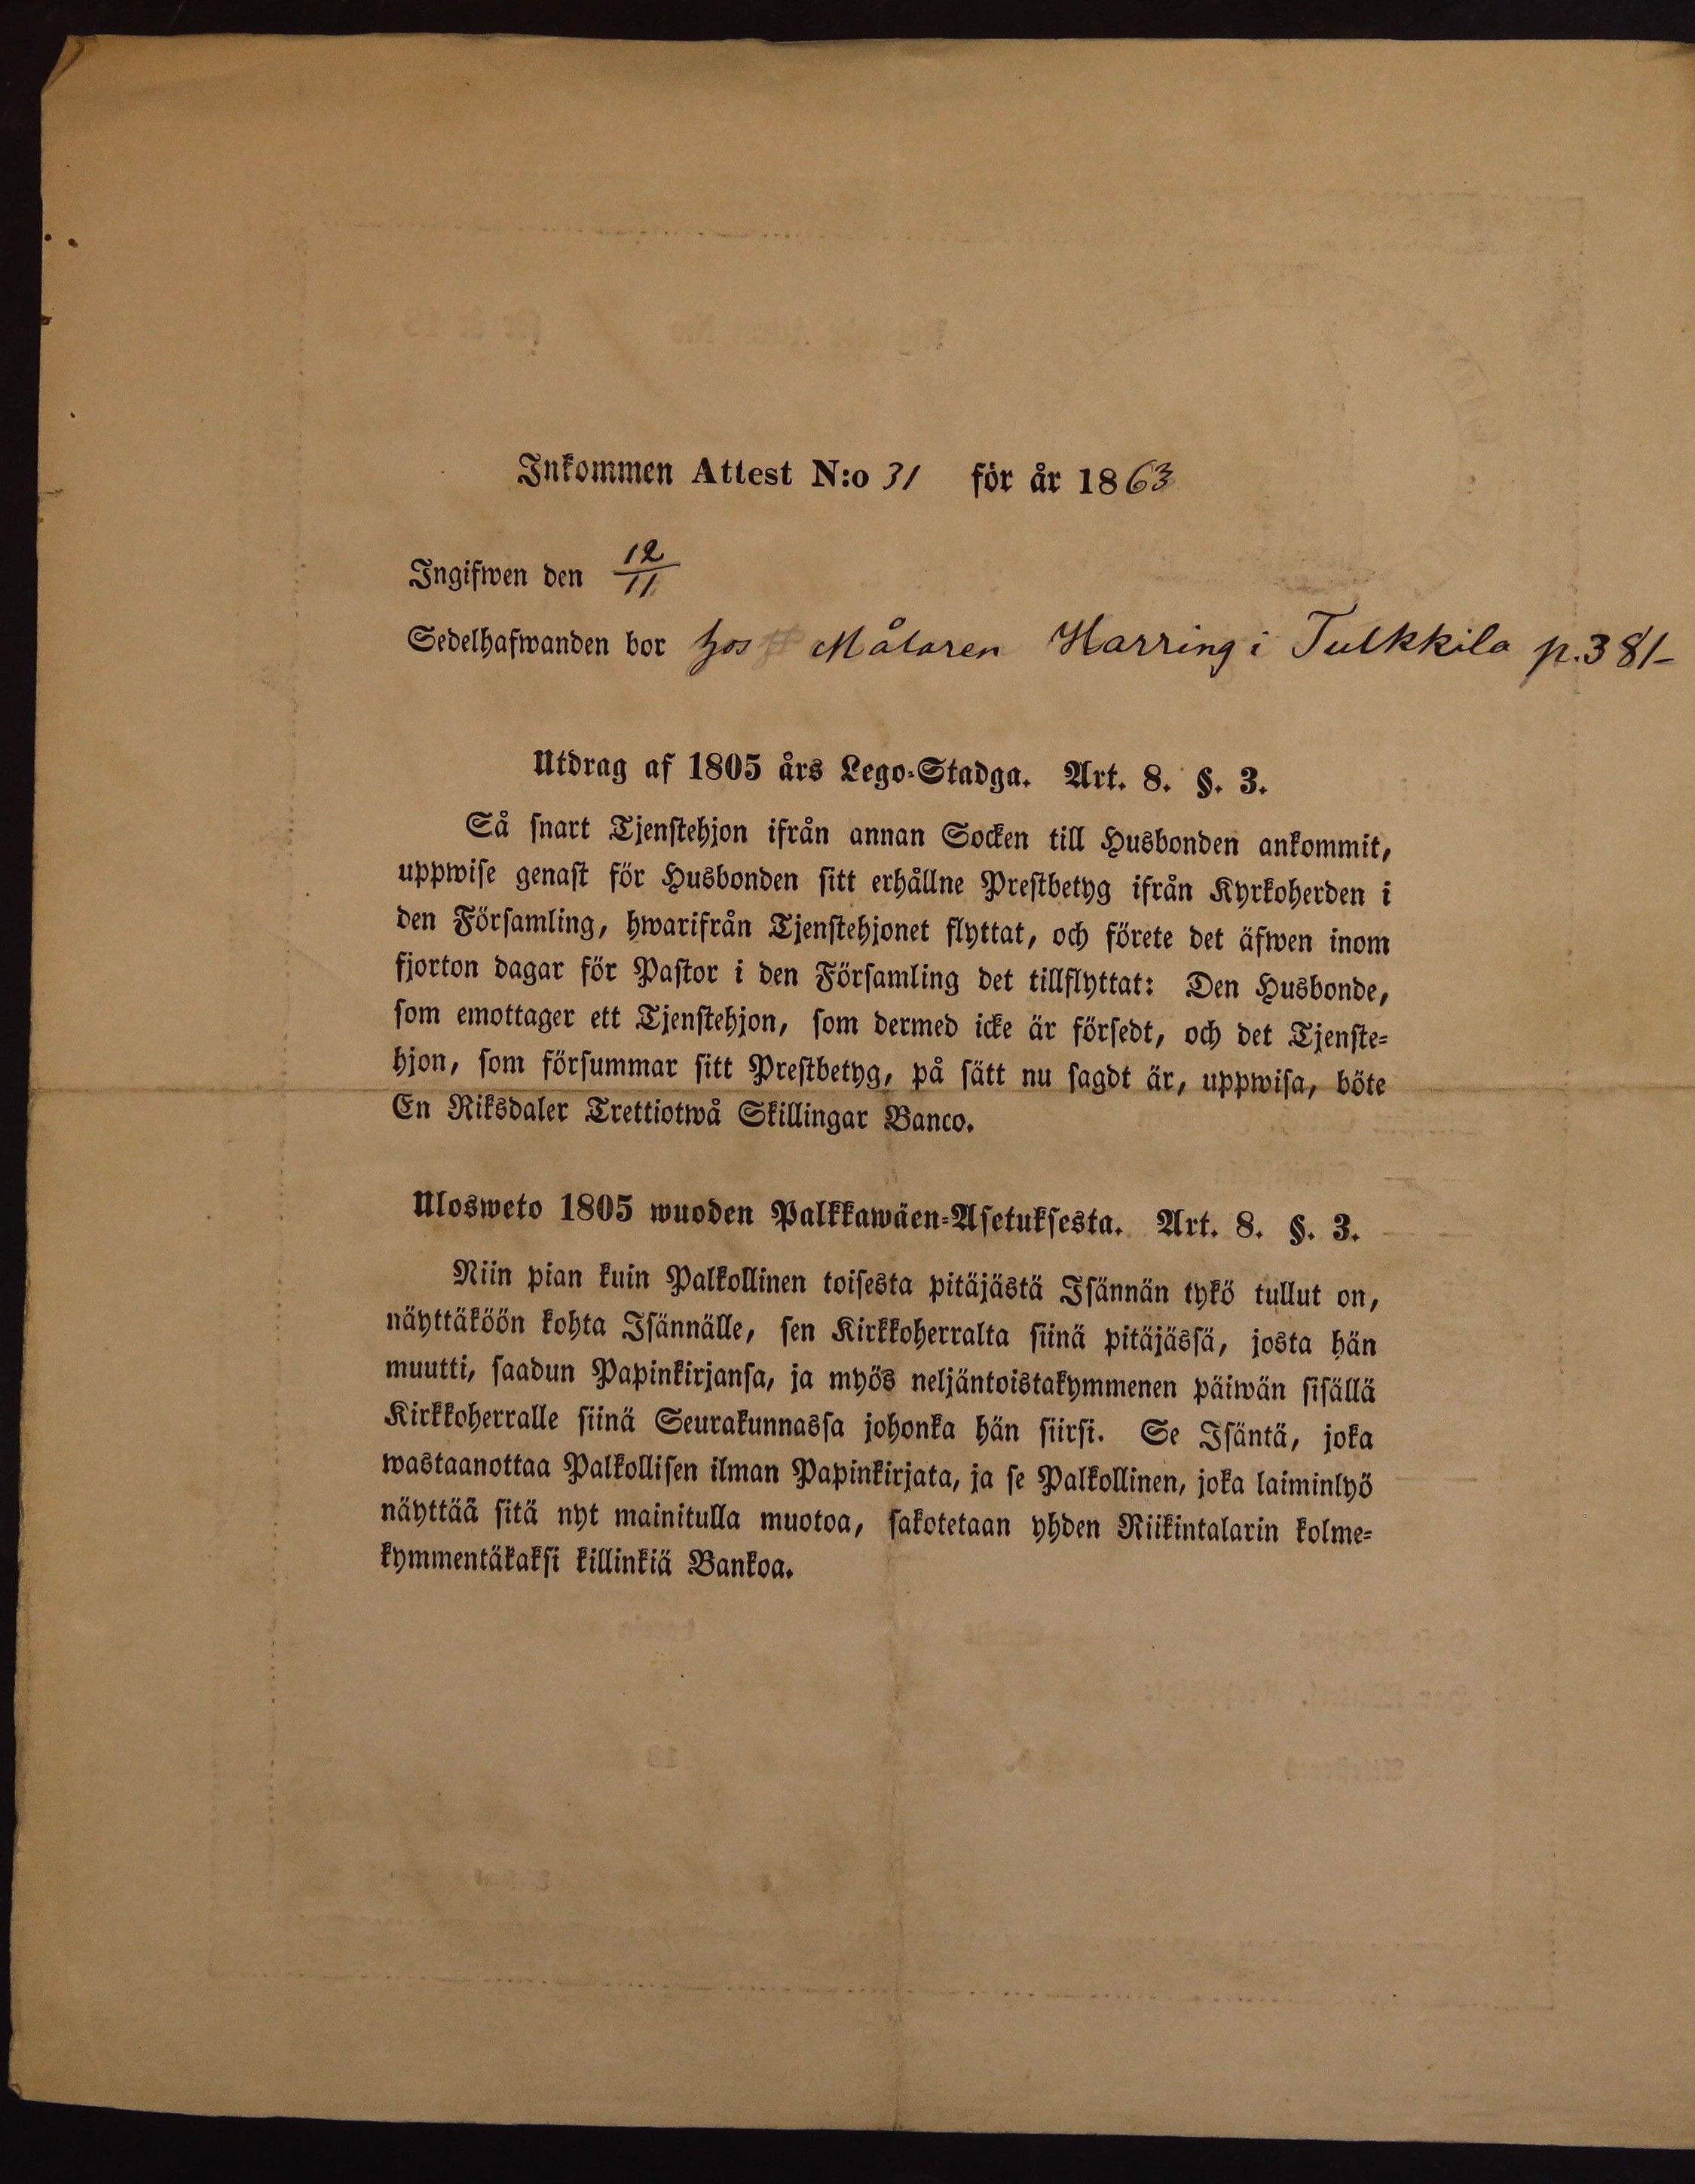 Inkommen Attest N:o 31 för år 1863
Ingifwen den 12/11
Sedelhafwanden bor hos Målaren Harring i Tulkkila p. 381–
Utdrag af 1805 års Lego-Stadga. Art. 8. §. 3.
Så snart Tjenstehjon ifrån annan Socken till Husbonden ankommit,
uppwise genast för Husbonden sitt erhållne Prestbetyg ifrån Kyrkoherden i
den Församling, hwarifrån Tjenstehjonet flyttat, och förete det äfwen inom
fjorton dagar för Pastor i den Församling det tillflyttat: Den Husbonde,
som emottager ett Tjenstehjon, som dermed icke är försedt, och det Tjenste-
hjon, som försummar sitt Prestbetyg, på sätt nu sagdt är, uppwisa, böte
En Riksdaler Trettiotwå Skillingar Banco.
Ulosweto 1805 wuoden Palkkawäen-Asetuksesta. Art. 8. §. 3.
Niin pian kuin Palkollinen toisesta pitäjästä Isännän tykö tullut on,
näyttäköön kohta Isännälle, sen Kirkkoherralta siinä pitäjässä, josta hän
muutti, saadun Papinkirjansa, ja myös neljäntoistakymmenen päiwän sisällä
Kirkkoherralle siinä Seurakunnassa johonka hän siirsi. Se Isäntä, joka
wastaanottaa Palkollisen ilman Papinkirjata, ja se Palkollinen, joka laiminlyö
näyttää sitä nyt mainitulla muotoa, sakotetaan yhden Riikintalarin kolme-
kymmentäkaksi killinkiä Bankoa.